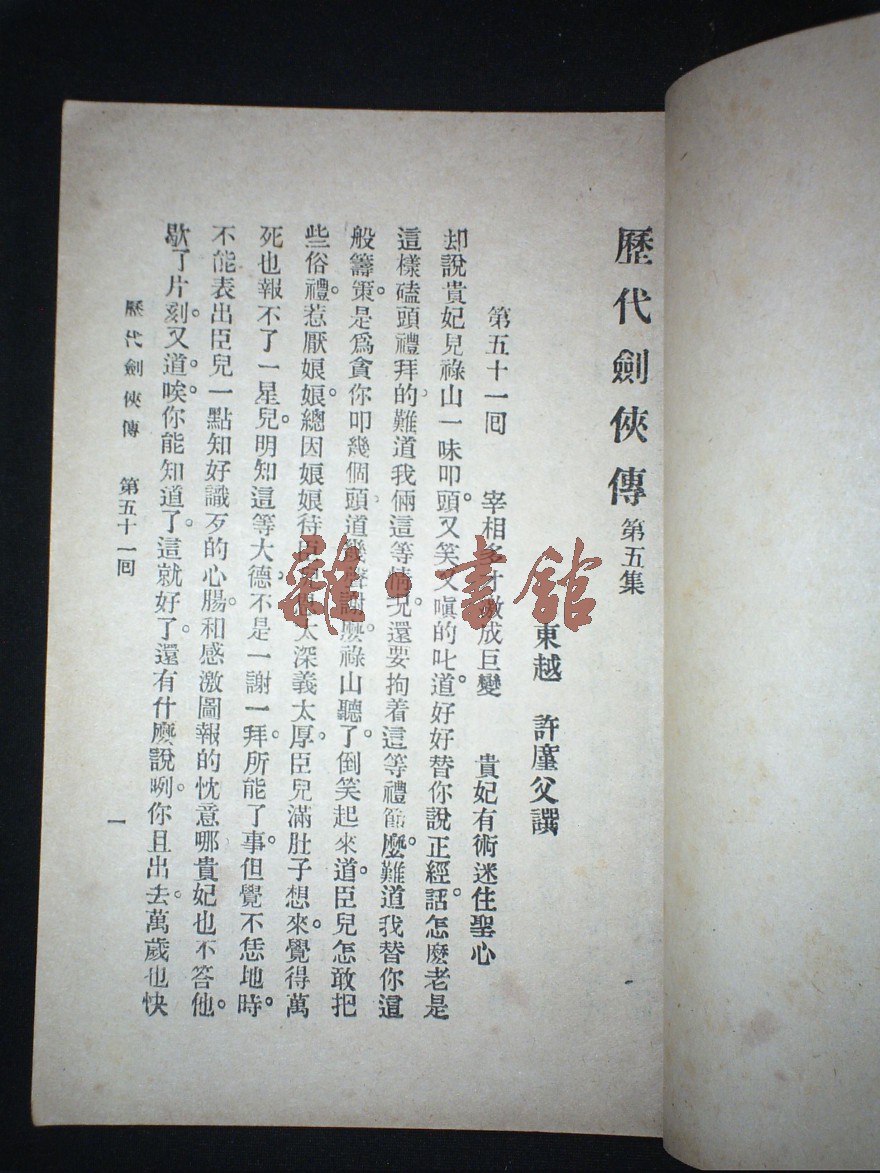 歷代劍俠傳第五集
東越 許廑父譔
第五十一回 宰相多才激成巨變 貴妃有術迷住聖心
却說貴妃見祿山一味叩頭。又笑又嗔的叱道好好替你說正經話。怎麼老是
這樣磕頭禮拜的。難道我倆這等情況。還要拘着這等禮節麼。難道我替你這
般籌策。是爲貪你叩幾個頭道幾聲謝麼。祿山聽了。倒笑起來道。臣兒怎敢把
些俗禮。惹厭娘娘。總因娘娘待臣兒恩太深義太厚。臣兒滿肚子想來。覺得萬
死也報不了一星兒。明知這等大德。不是一謝一拜所能了事。但覺不恁地時。
不能表出臣兒一點知好識歹的心腸。和感激圖報的忱意哪貴妃也不答他。
歇了片刻。又道。唉。你能知道了。這就好了。還有什麼說咧。你且出去。萬歲也快
歷代劍俠傳 第五十一回
一
雜·書館